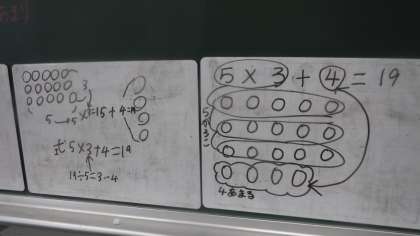 5 5×3=15+4=19
式 5×3+4=19
19÷5=3-4
5×3+4=19
5が3こ
4あまる